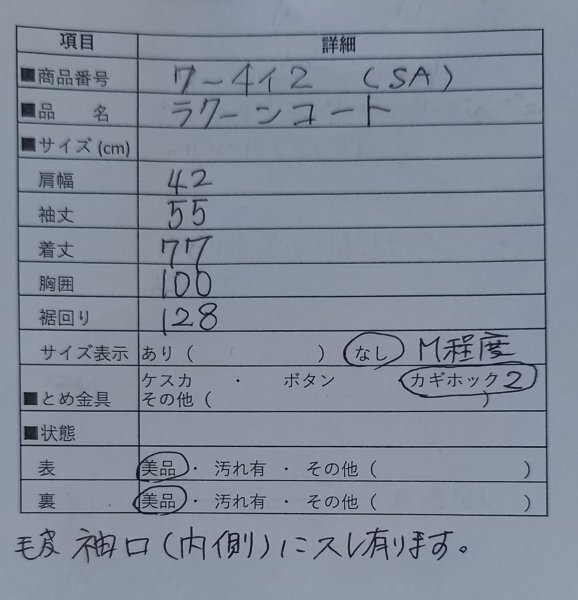 項目 詳細
■商品番号 7-412 (SA)
■品 名 ラクーンコート
■サイズ(cm)
肩幅 42
袖丈 55
着丈 77
胸囲 100
裾回り 128
サイズ表示 あり( ) なし M程度
■とめ金具 ケスカ ・ ボタン カギホック2
その他( )
■状態
表 美品・汚れ有・その他( )
裏 美品・汚れ有・その他( )
毛皮 袖口(内側)にスレ有ります。